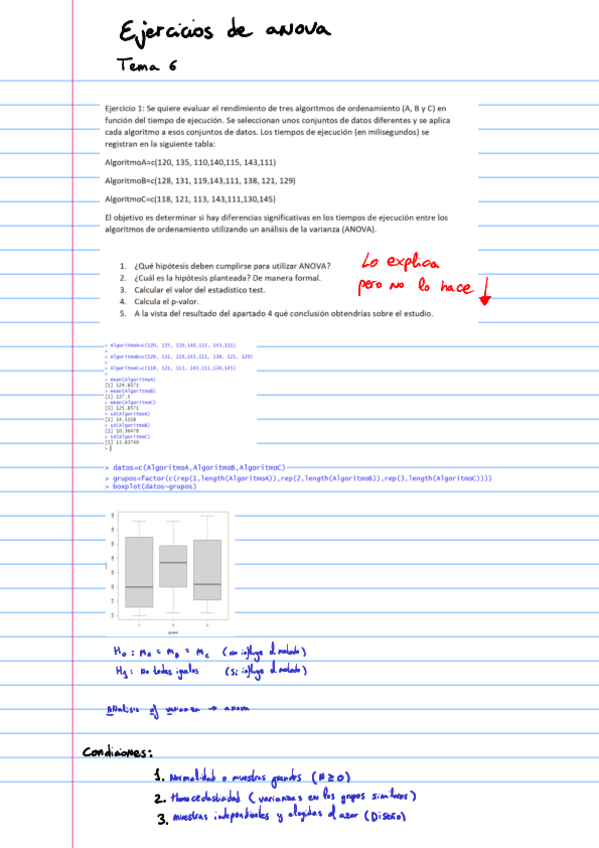 Ejercicios de anova
Tema 6
Ejercicio 1: Se quiere evaluar el rendimiento de tres algoritmos de ordenamiento (A, B y C) en
función del tiempo de ejecución. Se seleccionan unos conjuntos de datos diferentes y se aplica
cada algoritmo a esos conjuntos de datos. Los tiempos de ejecución (en milisegundos) se
registran en la siguiente tabla:
AlgoritmoA=c(120, 135, 110,140,115, 143,111)
AlgoritmoB=c(128, 131, 119,143,111, 138, 121, 129)
AlgoritmoC=c(118, 121, 113, 143,111,130,145)
El objetivo es determinar si hay diferencias significativas en los tiempos de ejecución entre los
algoritmos de ordenamiento utilizando un análisis de la varianza (ANOVA).
1. ¿Qué hipótesis deben cumplirse para utilizar ANOVA?
2. ¿Cuál es la hipótesis planteada? De manera formal.
3. Calcular el valor del estadístico test.
4. Calcula el p-valor.
5. A la vista del resultado del apartado 4 qué conclusión obtendrías sobre el estudio.
Lo explica
pero no lo hace
> AlgoritmoA=c(120, 135, 110,140,115, 143,111)
>
> AlgoritmoB=c(128, 131, 119,143,111, 138, 121, 129)
>
> AlgoritmoC=c(118, 121, 113, 143,111,130,145)
>
> mean(AlgoritmoA)
[1] 124.8571
> mean(AlgoritmoB)
[1] 127.5
> mean(AlgoritmoC)
[1] 125.8571
> sd(AlgoritmoA)
[1] 14.1118
> sd(AlgoritmoB)
[1] 10.36478
> sd(AlgoritmoC)
[1] 13.83749
>
> datos=c(AlgoritmoA,AlgoritmoB,AlgoritmoC)
> grupos=factor(c(rep(1,length(AlgoritmoA)),rep(2,length(AlgoritmoB)),rep(3,length(AlgoritmoC))))
> boxplot(datos~grupos)
1 2 3
grupos
H₀ : MA = MB = MC (no influye el metodo)
H₁ : No todas iguales (Si influye el metodo)
ANalisis of varianza → anova
Condiciones:
1. Normalidad o muestras grandes (N ≥ 0)
2. Homocedasticidad (varianzas en los grupos similares)
3. muestras independientes y elegidas al azar (Diseño)